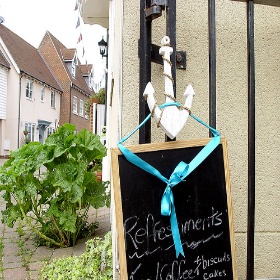 Refreshments
Coffee
+biscuits
cakes